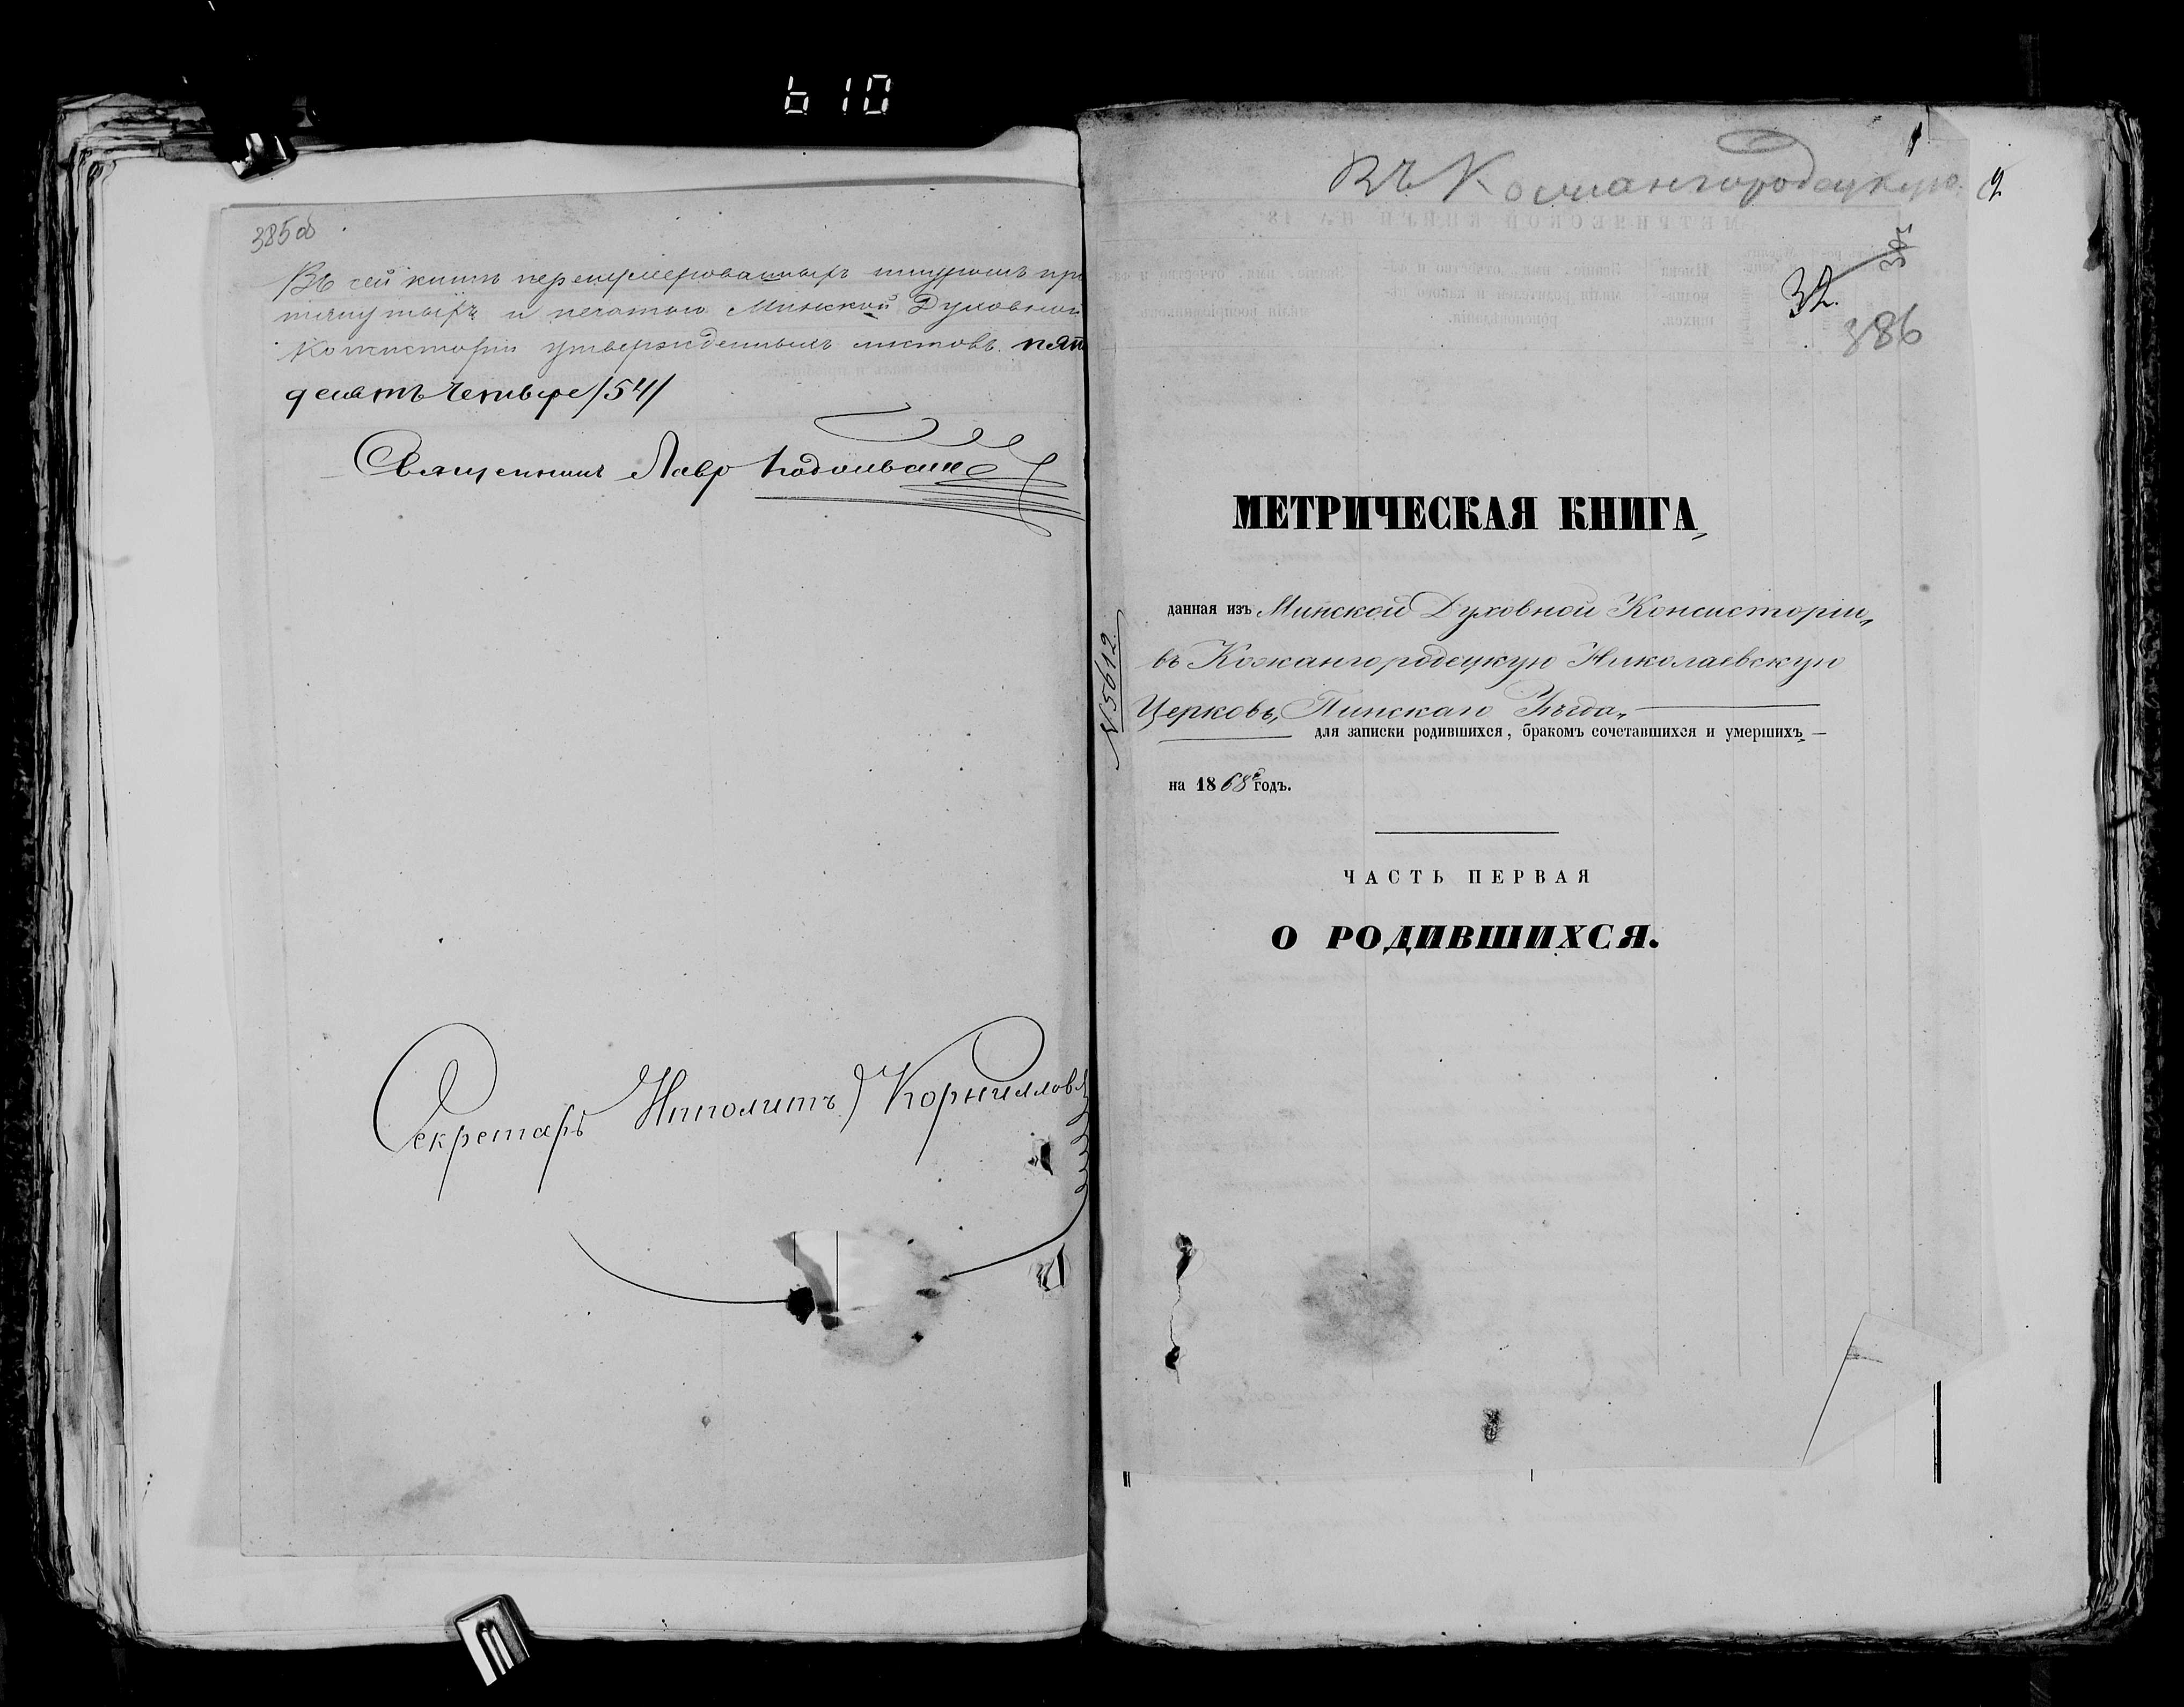 610
385об
Въ сей книгѣ перенумерованныхъ шнуромъ про
тянутыхъ и печатью Минской Духовной
Консисторіи утвержденныхъ листовъ пять
десятъ четыре /54/
Священникъ Лавр
Секретарь Ипполитъ Корнилловъ
Въ Кожангородецкую
9
32.
386
МЕТРИЧЕСКАЯ КНИГА,
данная изъ Минской Духовной Консисторіи,
въ Кожангородецкую Николаевскую
Церковь, Пинскаго Уѣзда,
для записки родившихся, бракомъ сочетавшихся и умершихъ,
на 1868й годъ.
№ 5612
ЧАСТЬ ПЕРВАЯ
О РОДИВШИХСЯ.